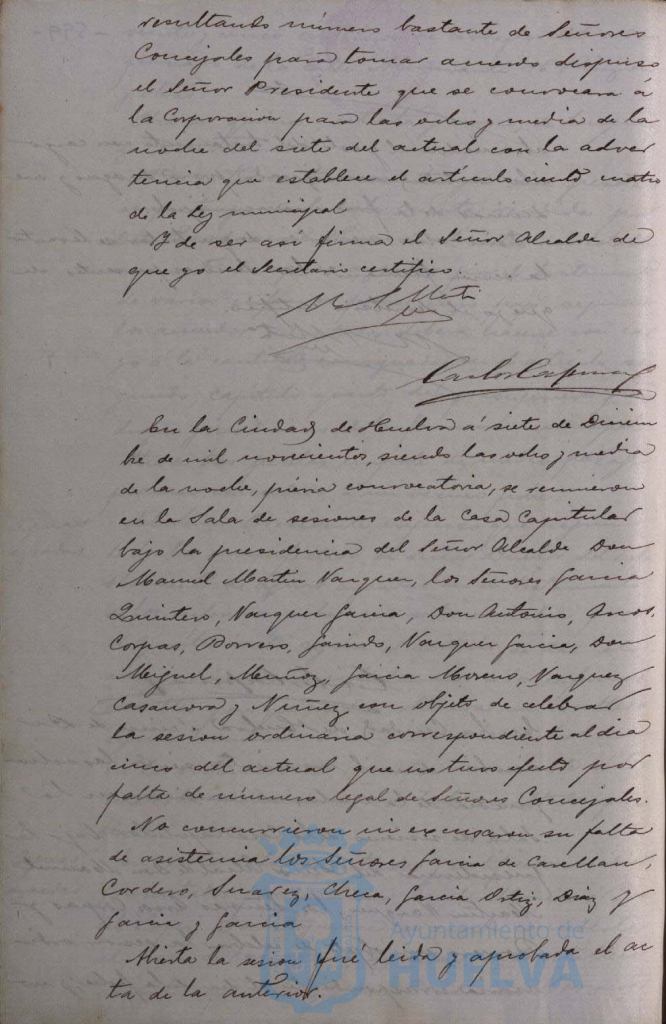 resultando número bastante de Señores
Concejales para tomar acuerdo dispuso
el Señor Presidente que se convocara á
la Corporacion para las ocho y media de la
noche del siete del actual con la adver
tencia que establece el artículo ciento cuatro
de la Ley municipal
Y de ser así firma el Señor Alcalde de
que yo el Secretario certifico.
Carlos
En la Ciudad de Huelva á siete de Diciem
bre de mil novecientos, siendo las ocho y media
de la noche, prévia convocatoria, se reunieron
en la Sala de sesiones de la Casa Capitular
bajo la presidencia del Señor Alcalde Don
Manuel Martin Vazquez, los Señores Garcia
Quintero, Vazquez Garcia, Don Antonio, Arcos,
Corpas, Borrero, Garrido, Vazquez Garcia, Don
Miguel, Muñoz, Garcia Moreno, Vazquez
Casanova y Nuñez con objeto de celebrar
la sesion ordinaria correspondiente al dia
cinco del actual que no tuvo efecto por
falta de número legal de Señores Concejales.
No concurrieron ni excusaron su falta
de asistencia los Señores Garcia de
Cordero, Suarez, Checa, Garcia Ortiz, Diaz y
Garcia y Garcia
Abierta la sesion fué leida y aprobada el ac
ta de la anterior.
Ayuntamiento de
HUELVA